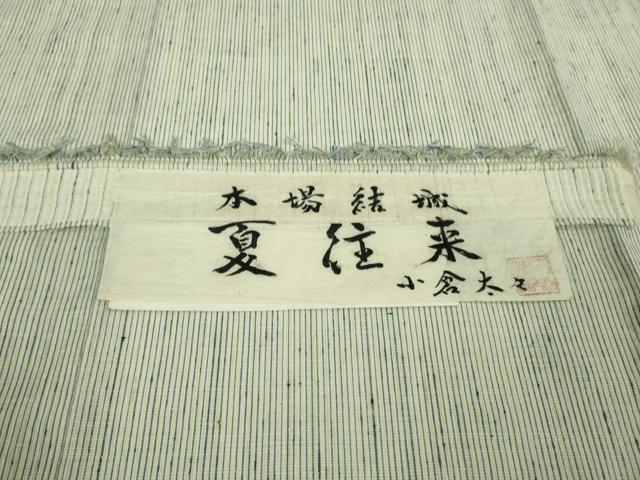 本場結城
夏往来
小倉太々